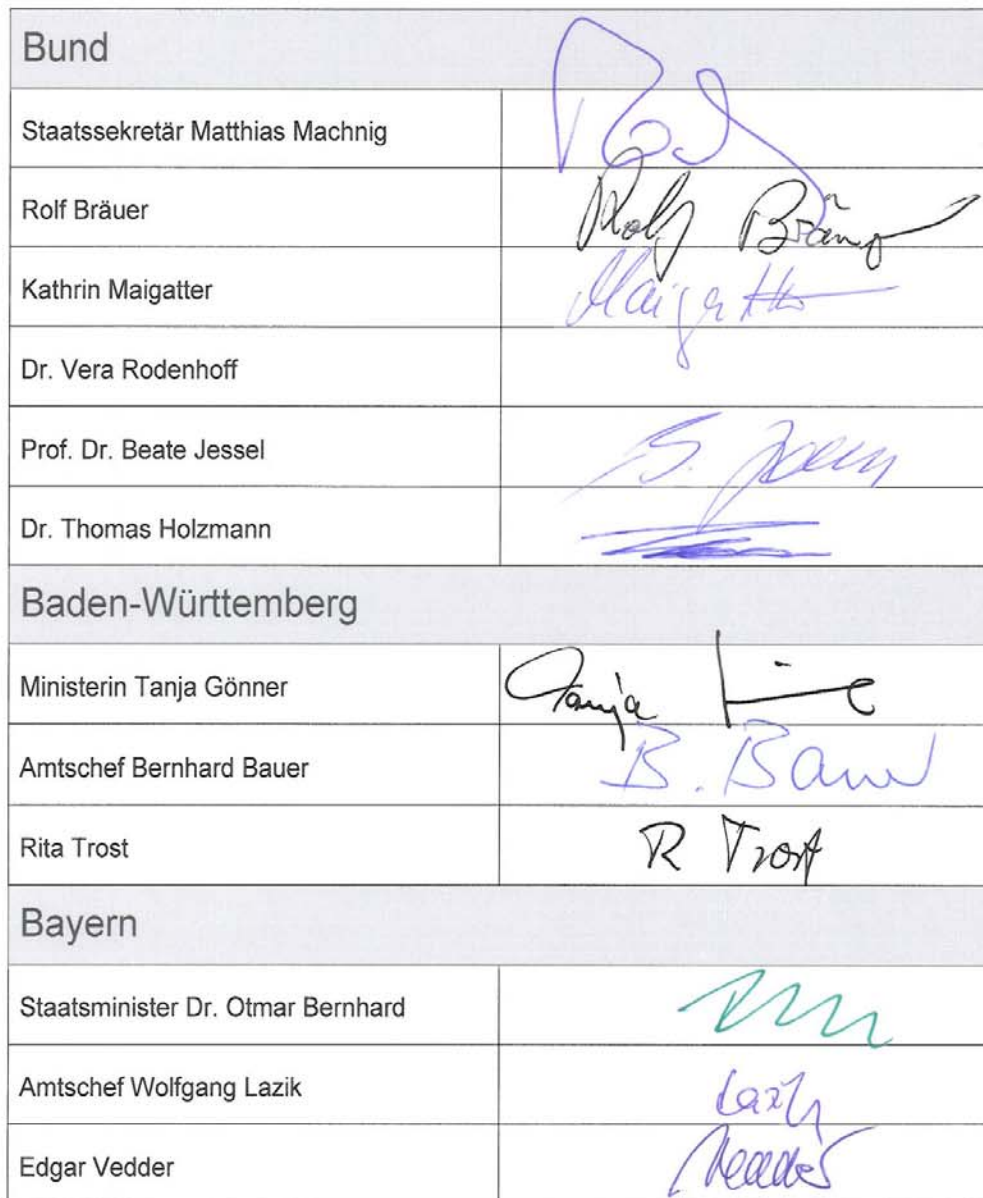 Bund
Staatssekretär Matthias Machnig
Rolf Bräuer Rolf Bräuer
Kathrin Maigatter Maigatter
Dr. Vera Rodenhoff
Prof. Dr. Beate Jessel B. Jessel
Dr. Thomas Holzmann
Baden-Württemberg
Ministerin Tanja Gönner Tanja
Amtschef Bernhard Bauer B. Bauer
Rita Trost R Trost
Bayern
Staatsminister Dr. Otmar Bernhard
Amtschef Wolfgang Lazik Lazik
Edgar Vedder Vedder